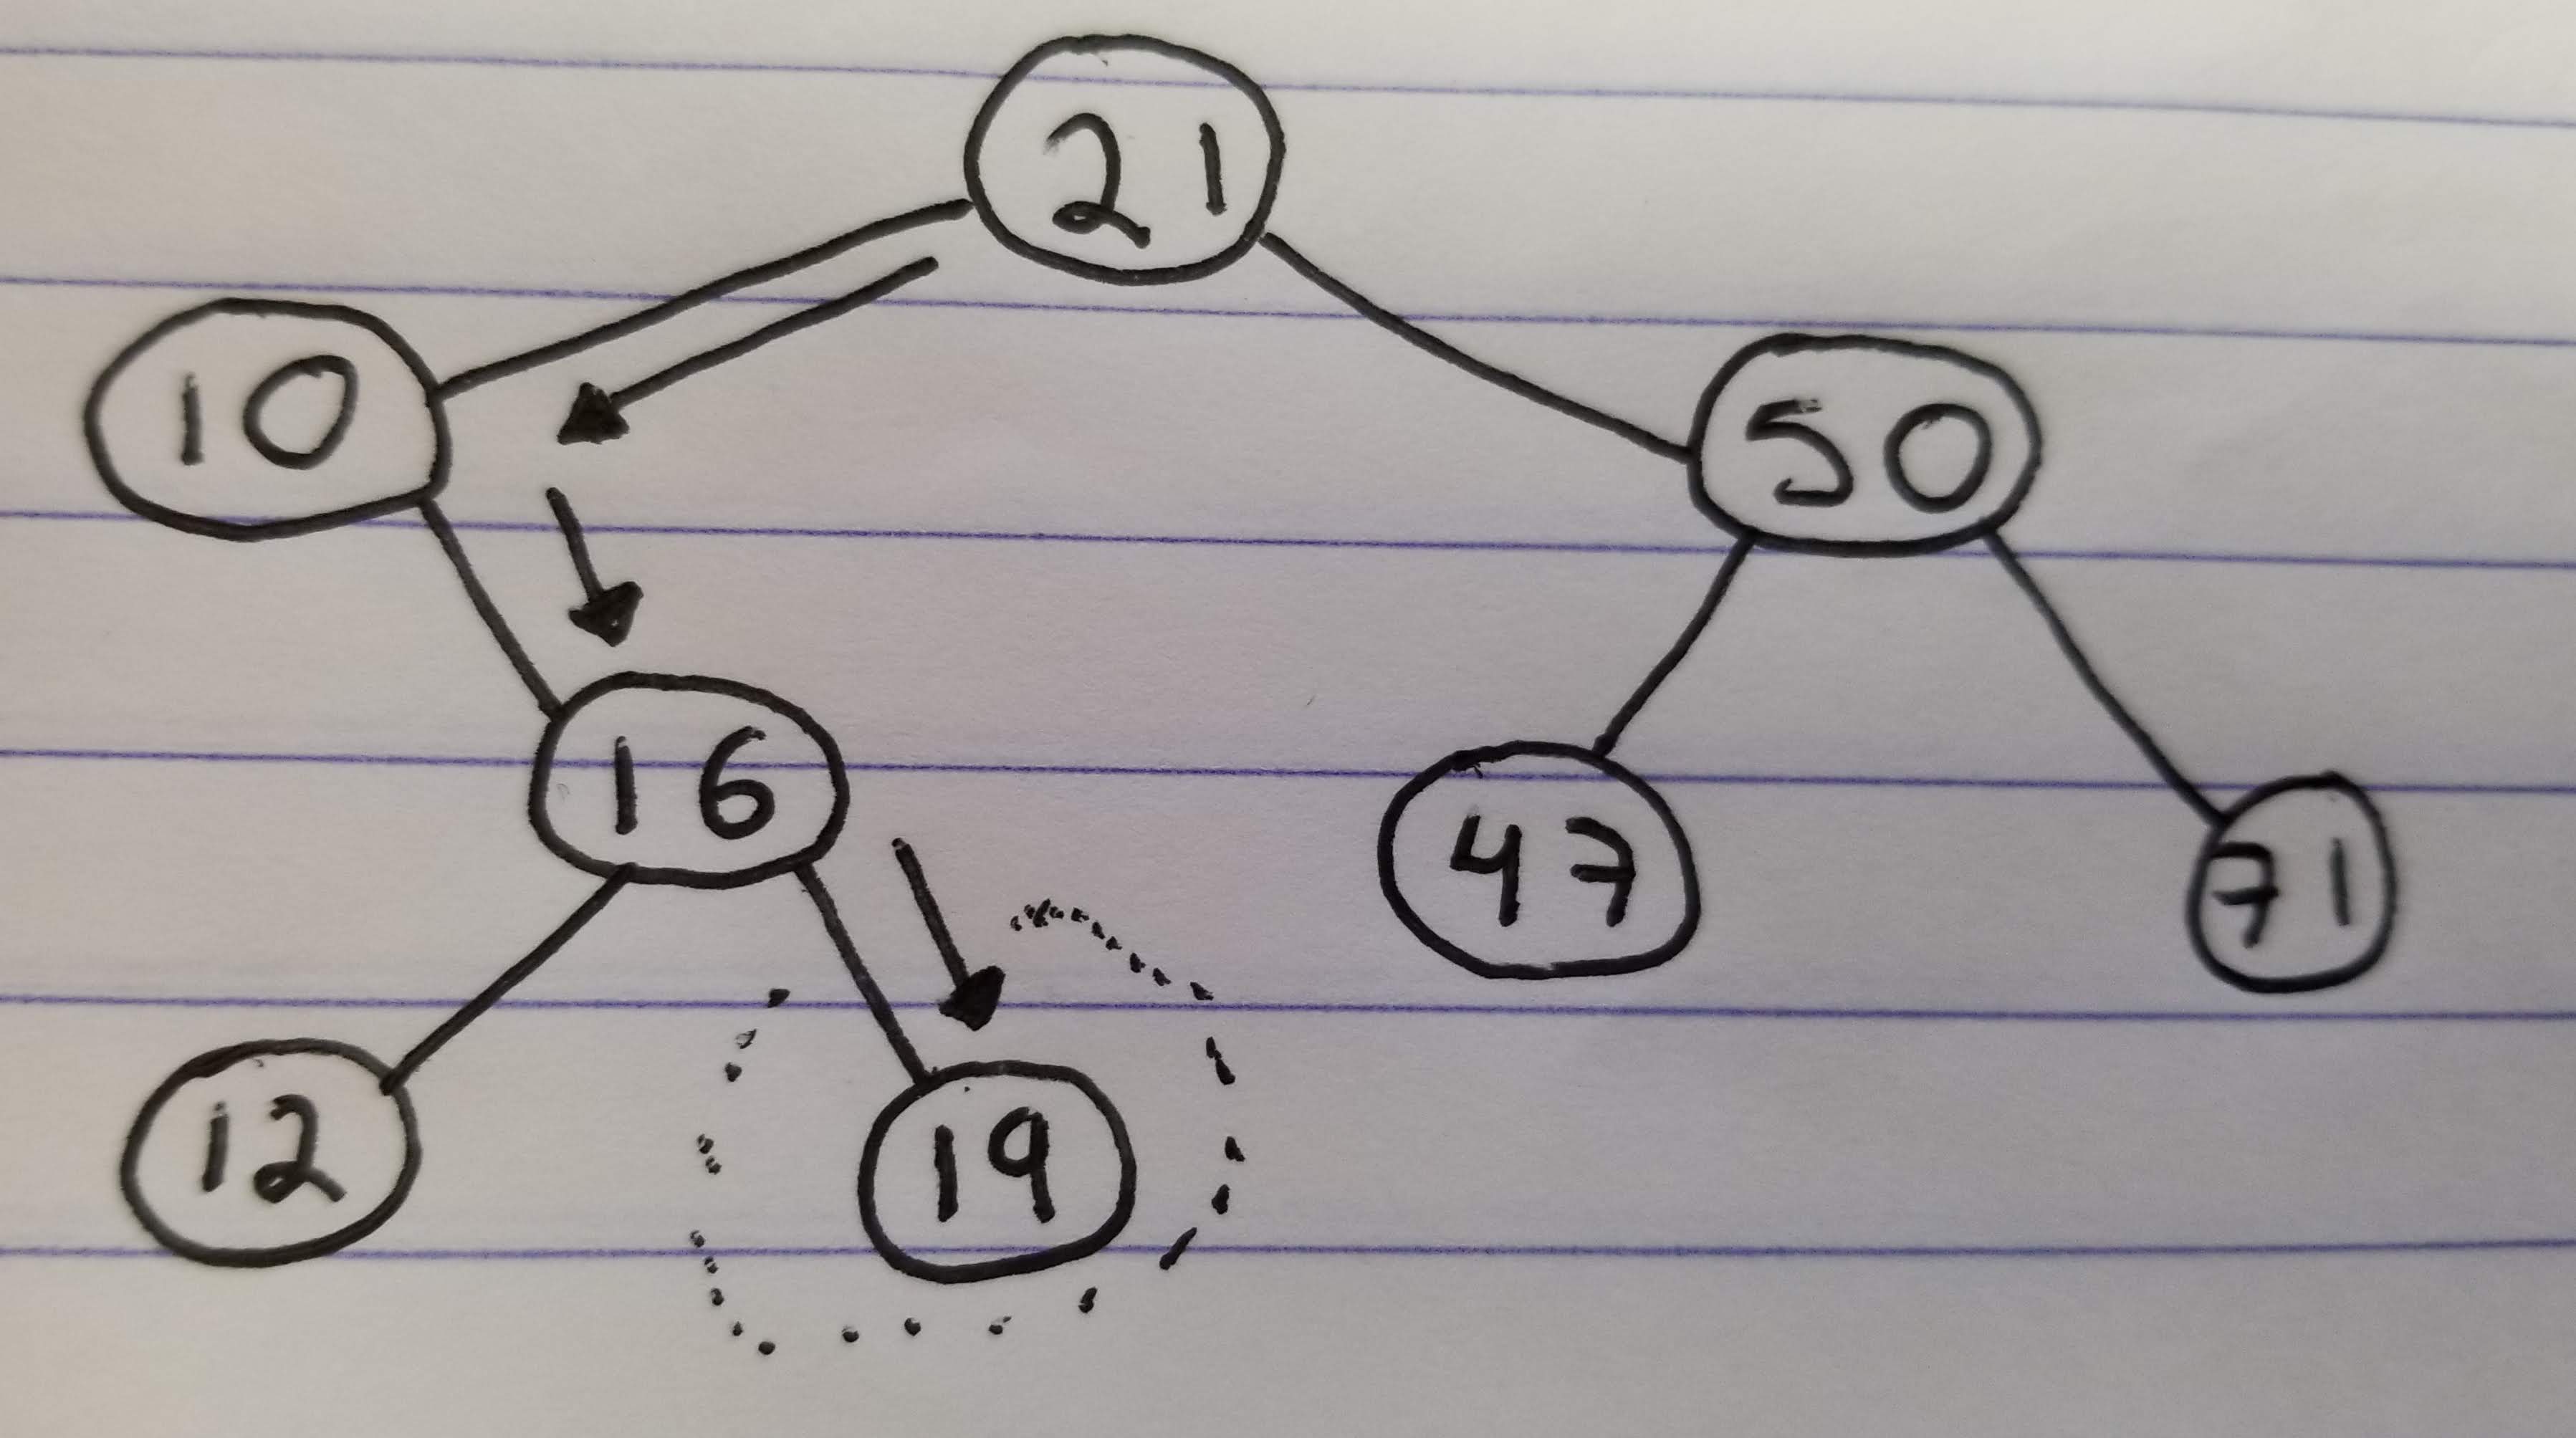 21
10 50
16 47 71
12 19